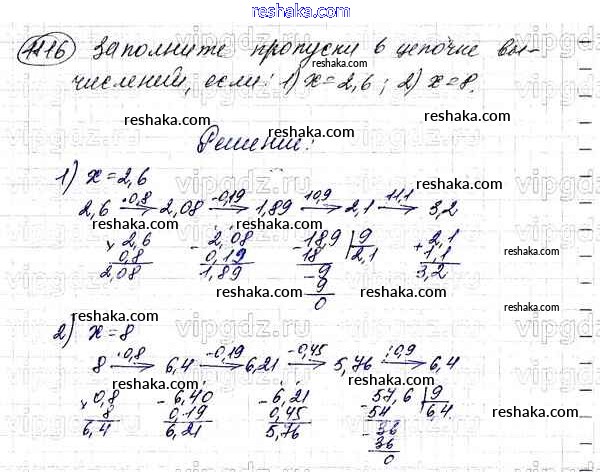 reshaka.com
1116 Заполните пропуски в цепочке вы-
числений, если: 1) x=2,6; 2) x=8.
reshaka.com
reshaka.com
Решение:
reshaka.com
1) x=2,6
reshaka.com
2,6 ·0,8→ 2,08 -0,19→ 1,89 :0,9→ 2,1 +1,1→ 3,2
reshaka.com
× 2,6 - 2,08 - 18,9 | 9 + 2,1
0,8 0,19 18 2,1 1,1
2,08 1,89 -9 3,2
9
0
reshaka.com
reshaka.com
reshaka.com
vipgdz.ru
2) x=8
reshaka.com
8 ·0,8→ 6,4 -0,19→ 6,21 -0,45→ 5,76 :0,9→ 6,4
reshaka.com
× 0,8 - 6,40 - 6,21 - 57,6 | 9
8 0,19 0,45 54 6,4
6,4 6,21 5,76 - 36
36
0
reshaka.com
reshaka.com
reshaka.com
reshaka.com